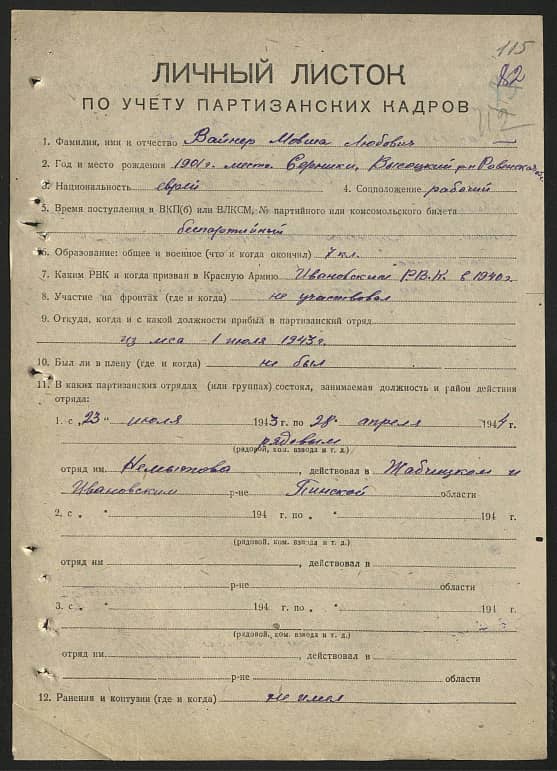 115
82
112
ЛИЧНЫЙ ЛИСТОК
ПО УЧЕТУ ПАРТИЗАНСКИХ КАДРОВ
1. Фамилия, имя и отчество Вайнер Мовша Любович
2. Год и место рождения 1901г. мест. Серники, Высоцкий р-н Ровенской обл
3. Национальность еврей 4. Соцположение рабочий
5. Время поступления в ВКП(б) или ВЛКСМ, № партийного или комсомольского билета
беспартийный
6. Образование: общее и военное (что и когда окончил) 7 кл.
7. Каким РВК и когда призван в Красную Армию Ивановским Р.В.К. в 1940г.
8. Участие на фронтах (где и когда) не участвовал
9. Откуда, когда и с какой должности прибыл в партизанский отряд
из леса 1 июля 1943г.
10. Был ли в плену (где и когда) не был
11. В каких партизанских отрядах (или группах) состоял, занимаемая должность и район действия
отряда:
1. с „23" июля 1943 г. по 28 апреля 1944 г.
рядовым
(рядовой, ком. взвода и т. д.)
отряд им. Немытова, действовал в Жабчицком и
Ивановским р-не Пинской области
2, с „ " 194 г. по „ " 194 г.
(рядовой, ком. взвода и т. д.)
отряд им. , действовал в
р-не области
3. с „ " 194 г. по „ " 194 г.
(рядовой, ком. взвода и т. д.)
отряд им. , действовал в
р-не области
12. Ранения и контузии (где и когда) не имел